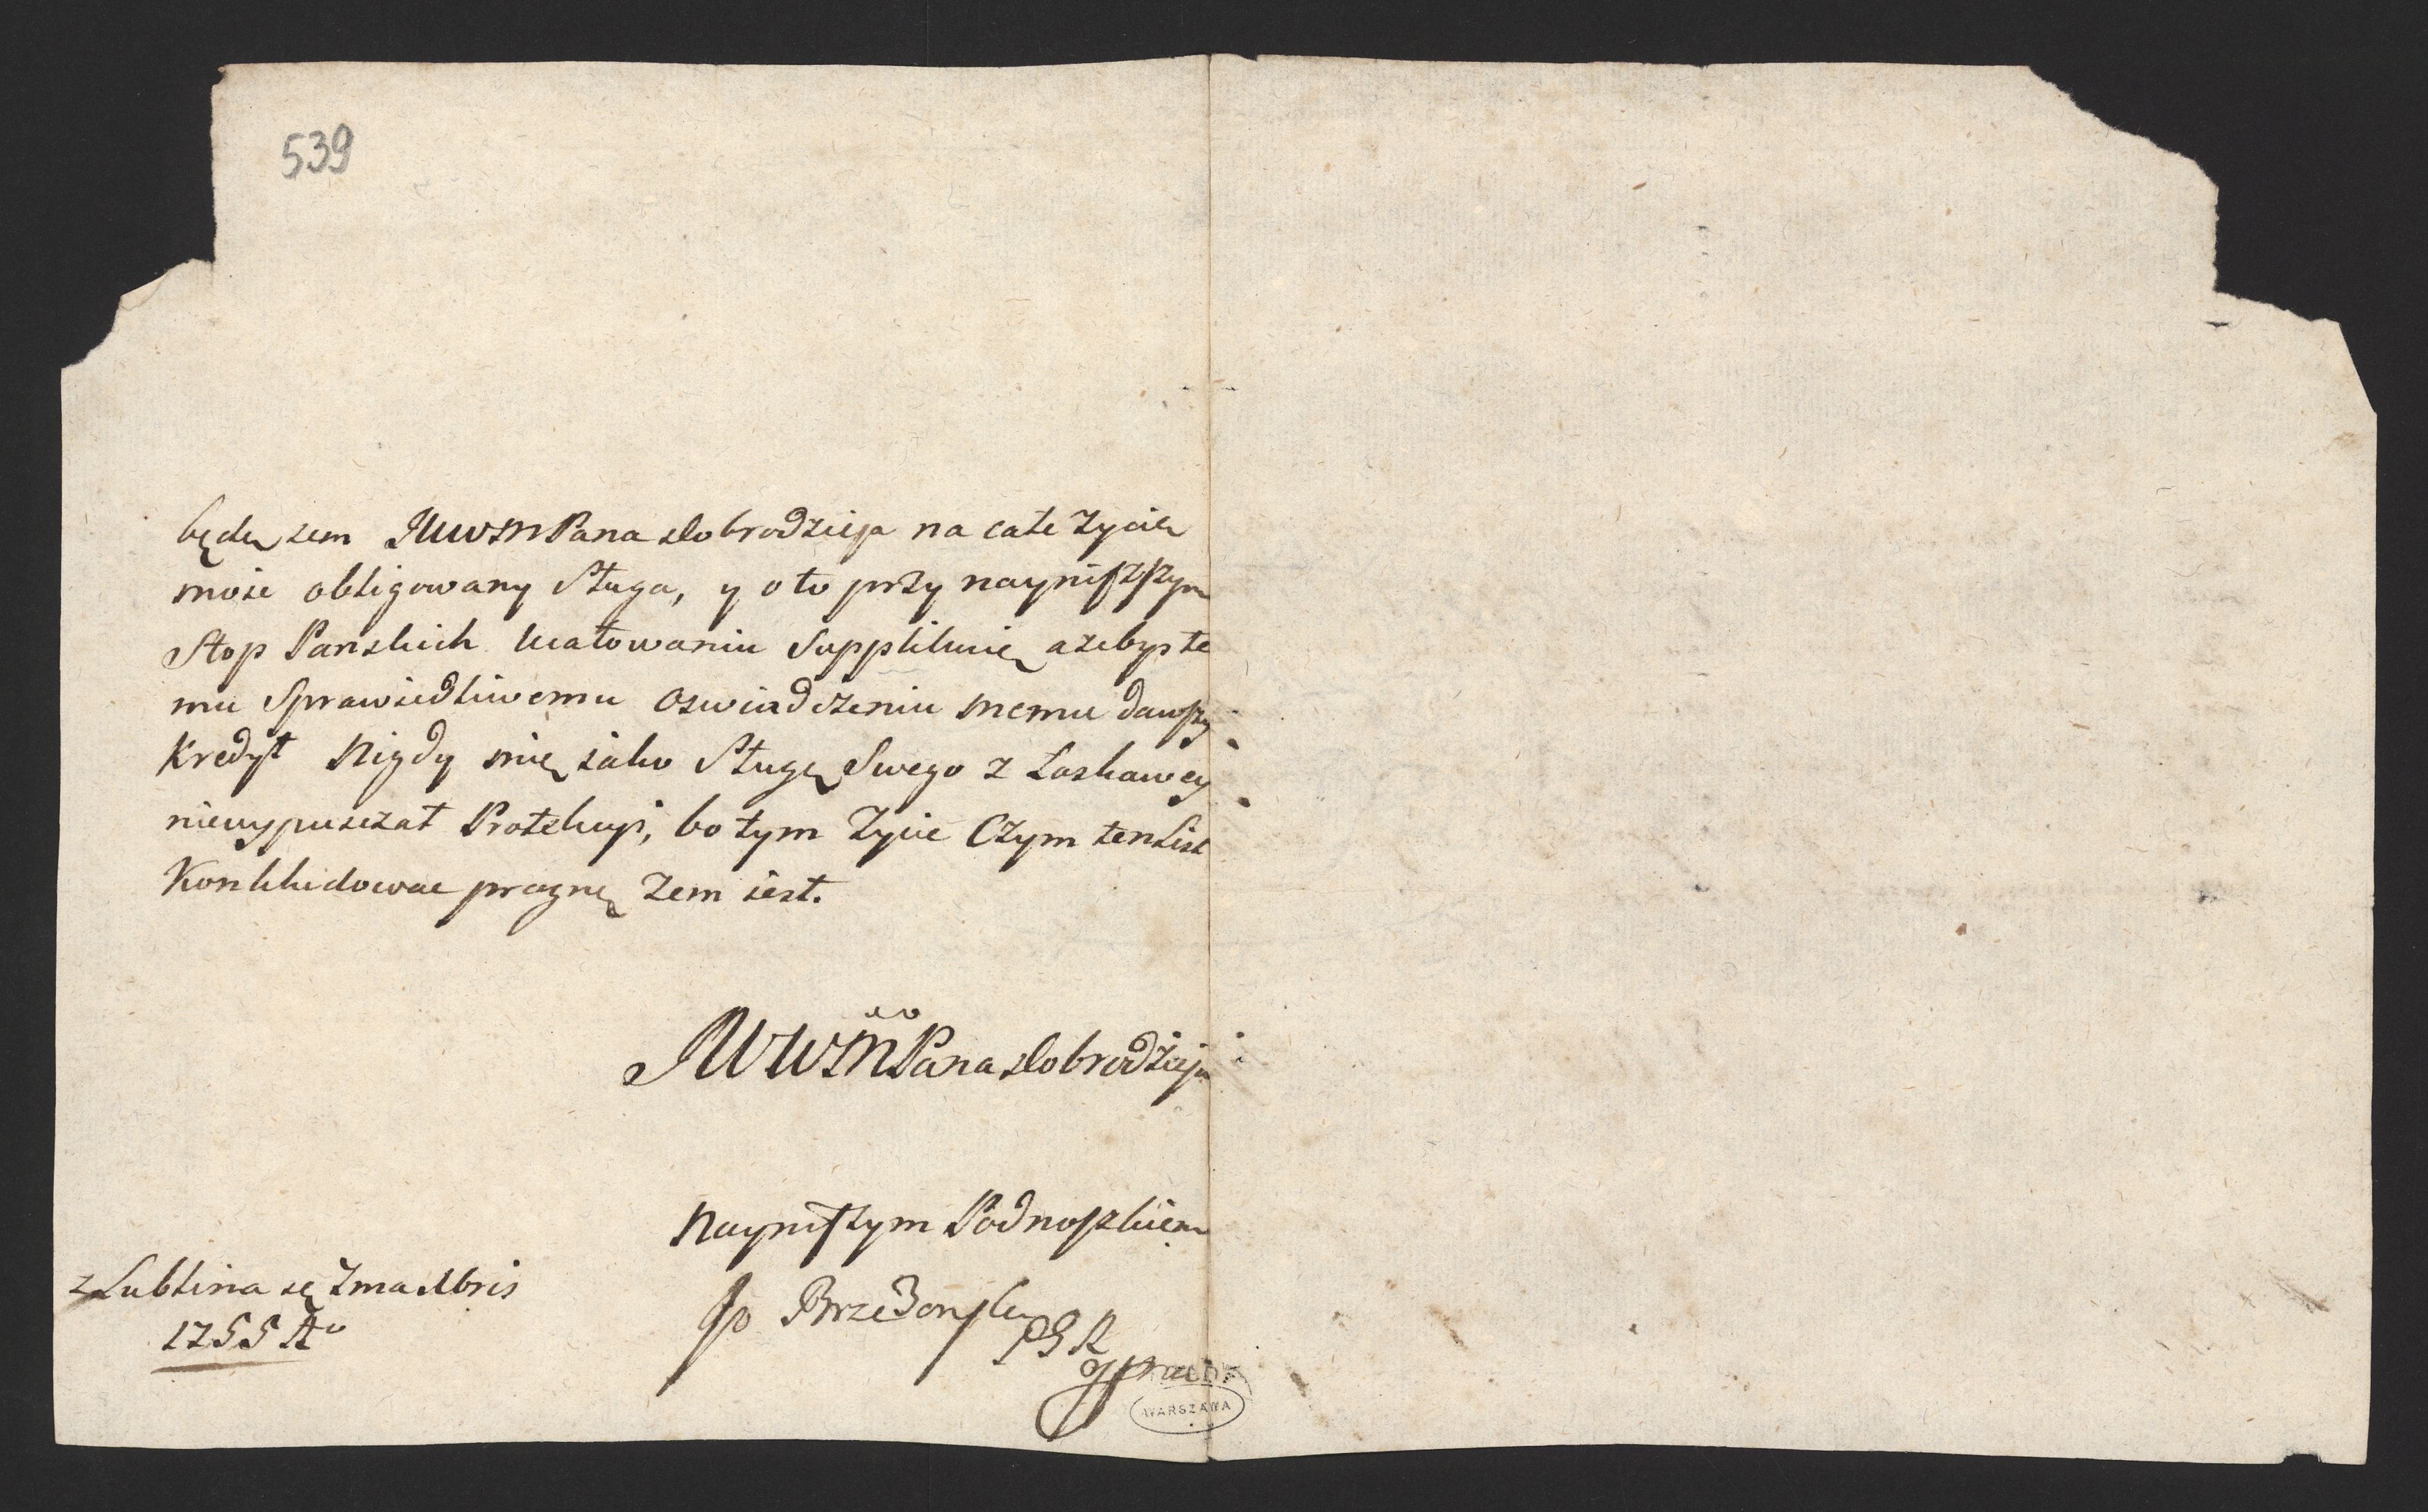 539
będę zem JWWMPana dobrodzieja na całe zycie
moie obligowany Sługa, y o to przy nayniszszym
Stop Panskich ucałowaniu Supplikuię azebys te
mu Sprawiedliwemu Oswiadczeniu memu dawszy
Kredyt Nigdy mię iako Sługę Swego z Laskawey
niewypuszczał Protekcyi, bo tym zyie Czym ten List
Konkludowac pragnę zem iest.
JWWMPana dobrodzieja
Nayniszym Podnoszkiem
z Lublina
1755 A°
PGR
WARSZAWA